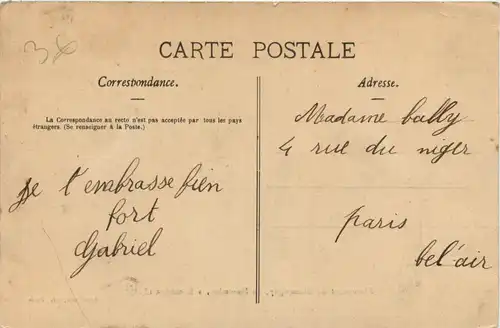 CARTE POSTALE
Correspondance.
La Correspondance au recto n'est pas acceptée par tous les pays
étrangers. (Se renseigner à la Poste.)
je t'embrasse bien
fort
Gabriel
Adresse.
Madame bally
4 rue du niger
paris
bel'air